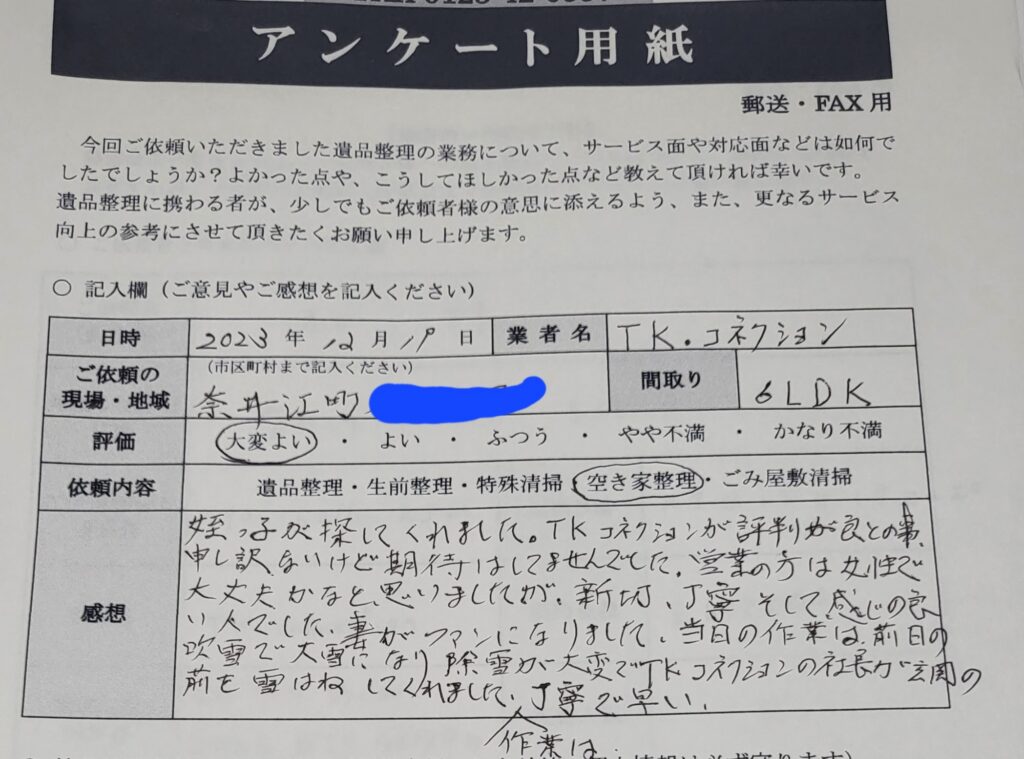 アンケート用紙
郵送・FAX 用
今回ご依頼いただきました遺品整理の業務について、サービス面や対応面などは如何で
したでしょうか？よかった点や、こうしてほしかった点など教えて頂ければ幸いです。
遺品整理に携わる者が、少しでもご依頼者様の意思に添えるよう、また、更なるサービス
向上の参考にさせて頂きたくお願い申し上げます。
○ 記入欄（ご意見やご感想を記入ください）
日時 2023 年 12 月 19 日 業者名 TK.コネクション
ご依頼の現場・地域 （市区町村まで記入ください） 奈井江町 間取り 6LDK
評価 大変よい ・ よい ・ ふつう ・ やや不満 ・ かなり不満
依頼内容 遺品整理・生前整理・特殊清掃・空き家整理・ごみ屋敷清掃
感想
姪っ子が探してくれました。TKコネクションが評判が良との事、
申し訳ないけど期待はしてませんでした。営業の方は女性で
大丈夫かなと思いましたが、新切、丁寧そして感じの良
い人でした、妻がファンになりました。当日の作業は、前日の
吹雪で大雪になり除雪が大変でTKコネクションの社長が玄関の
前を雪はねしてくれました、丁寧で早い.
作業は